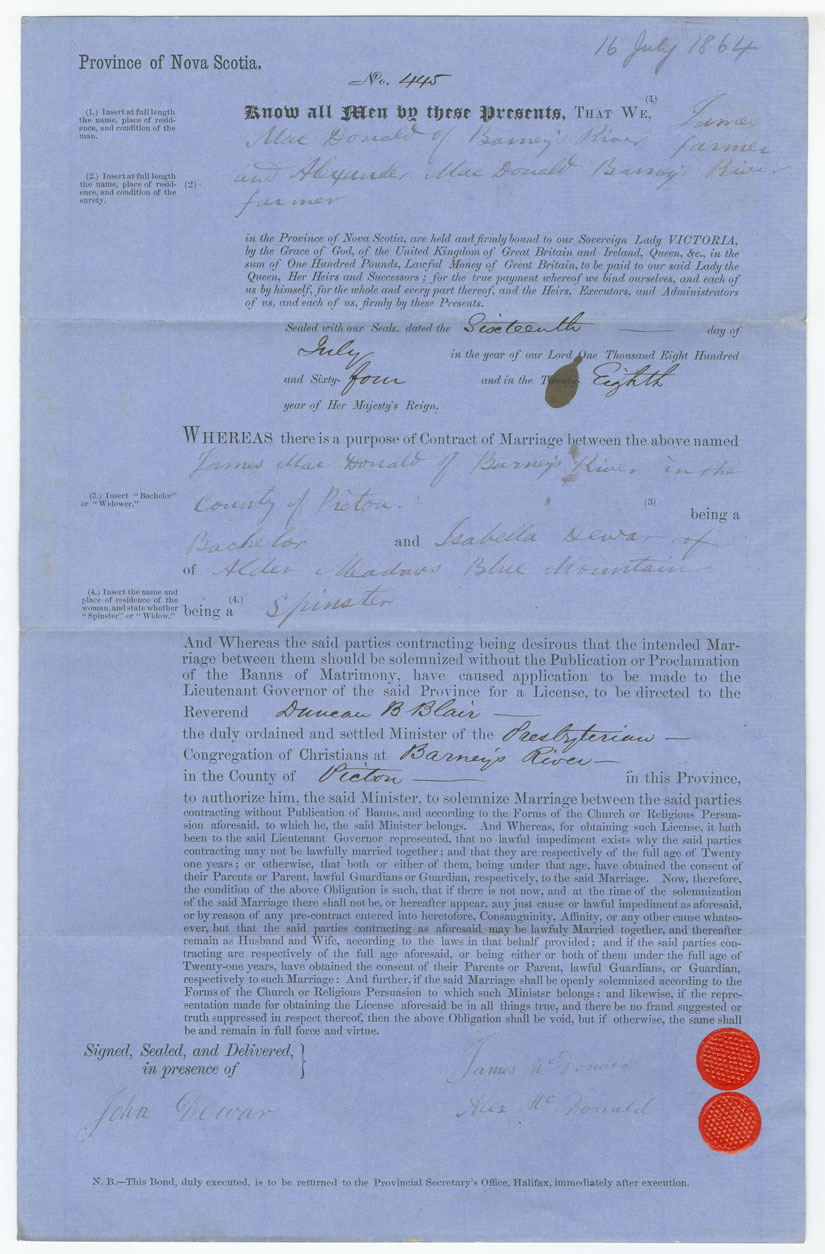 16 July 1864
Province of Nova Scotia.
No. 445
(1.) Insert at full length
the name, place of resid-
ence, and condition of the
man.
Know all Men by these Presents, THAT WE, (1) James
Mac Donald of Barney's River farmer
(2.) Insert at full length
the name, place of resid-
ence, and condition of the
surety.
(2) and Alexander Mac Donald Barney's River
farmer
in the Province of Nova Scotia, are held and firmly bound to our Sovereign Lady VICTORIA,
by the Grace of God, of the United Kingdom of Great Britain and Ireland, Queen, &c., in the
sum of One Hundred Pounds, Lawful Money of Great Britain, to be paid to our said Lady the
Queen, Her Heirs and Successors; for the true payment whereof we bind ourselves, and each of
us by himself, for the whole and every part thereof, and the Heirs, Executors, and Administrators
of us, and each of us, firmly by these Presents.
Sealed with our Seals, dated the Sixteenth day of
July in the year of our Lord One Thousand Eight Hundred
and Sixty-four and in the Twenty- Eighth
year of Her Majesty's Reign.
WHEREAS there is a purpose of Contract of Marriage between the above named
James Mac Donald of Barney's River in the
County of Picton.
(3.) Insert "Bachelor"
or "Widower."
(3) being a
Bachelor and Isabella Dewar of
of Alder Meadows Blue Mountain
(4.) Insert the name and
place of residence of the
woman, and state whether
"Spinster" or "Widow."
being a (4.) Spinster
And Whereas the said parties contracting being desirous that the intended Mar-
riage between them should be solemnized without the Publication or Proclamation
of the Banns of Matrimony, have caused application to be made to the
Lieutenant Governor of the said Province for a License, to be directed to the
Reverend Duncan B Blair
the duly ordained and settled Minister of the Presbyterian
Congregation of Christians at Barney's River
in the County of Picton in this Province,
to authorize him, the said Minister, to solemnize Marriage between the said parties
contracting without Publication of Banns, and according to the Forms of the Church or Religious Persua-
sion aforesaid, to which he, the said Minister belongs. And Whereas, for obtaining such License, it hath
been to the said Lieutenant Governor represented, that no lawful impediment exists why the said parties
contracting may not be lawfully married together; and that they are respectively of the full age of Twenty
one years; or otherwise, that both or either of them, being under that age, have obtained the consent of
their Parents or Parent, lawful Guardians or Guardian, respectively, to the said Marriage. Now, therefore,
the condition of the above Obligation is such, that if there is not now, and at the time of the solemnization
of the said Marriage there shall not be, or hereafter appear, any just cause or lawful impediment as aforesaid,
or by reason of any pre-contract entered into heretofore, Consanguinity, Affinity, or any other cause whatso-
ever, but that the said parties contracting as aforesaid may be lawfuly Married together, and thereafter
remain as Husband and Wife, according to the laws in that behalf provided; and if the said parties con-
tracting are respectively of the full age aforesaid, or being either or both of them under the full age of
Twenty-one years, have obtained the consent of their Parents or Parent, lawful Guardians, or Guardian,
respectively to such Marriage: And further, if the said Marriage shall be openly solemnized according to the
Forms of the Church or Religious Persuasion to which such Minister belongs: and likewise, if the repre-
sentation made for obtaining the License aforesaid be in all things true, and there be no fraud suggested or
truth suppressed in respect thereof, then the above Obligation shall be void, but if otherwise, the same shall
be and remain in full force and virtue.
Signed, Sealed, and Delivered,
in presence of
James McDonald
John Dewar
Alex McDonald
N. B.—This Bond, duly executed, is to be returned to the Provincial Secretary's Office, Halifax, immediately after execution.